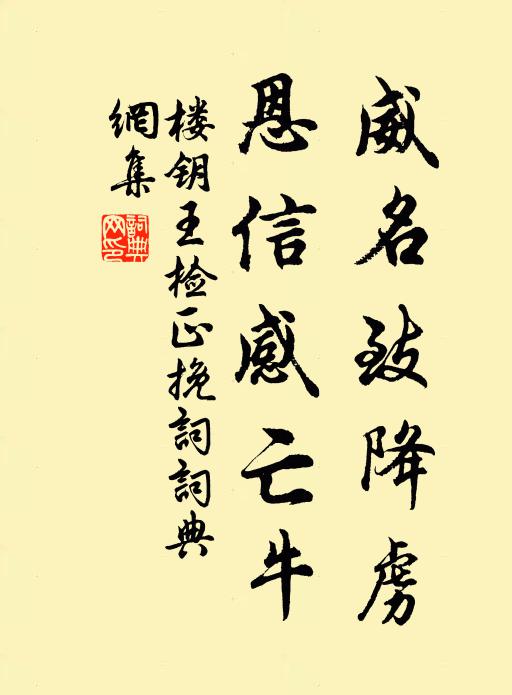 威名致降虏
恩信感亡牛
楼钥王检正挽詞詞典
網集
詞典
网印